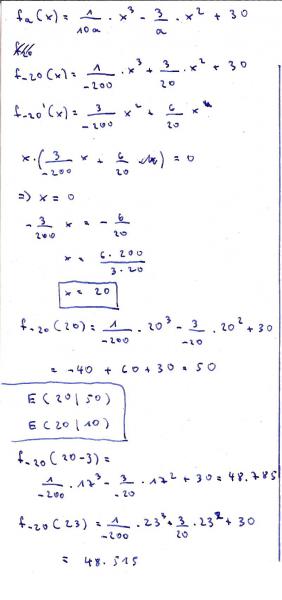 fa(x) = 1/10a · x³ - 3/a · x² + 30
f-20(x) = 1/-200 · x³ + 3/20 · x² + 30
f-20'(x) = 3/-200 x² + 6/20 x
x · (3/-200 x + 6/20) = 0
⇒ x = 0
-3/200 x = -6/20
x = 6·200/3·20
x = 20
f-20(20) = 1/-200 · 20³ - 3/-20 · 20² + 30
= -40 + 60 + 30 = 50
E (20|50)
E (20|10)
f-20(20-3) =
1/-200 · 17³ - 3/-20 · 17² + 30 = 48.785
f-20(23) = 1/-200 · 23³ + 3/20 · 23² + 30
= 48.515